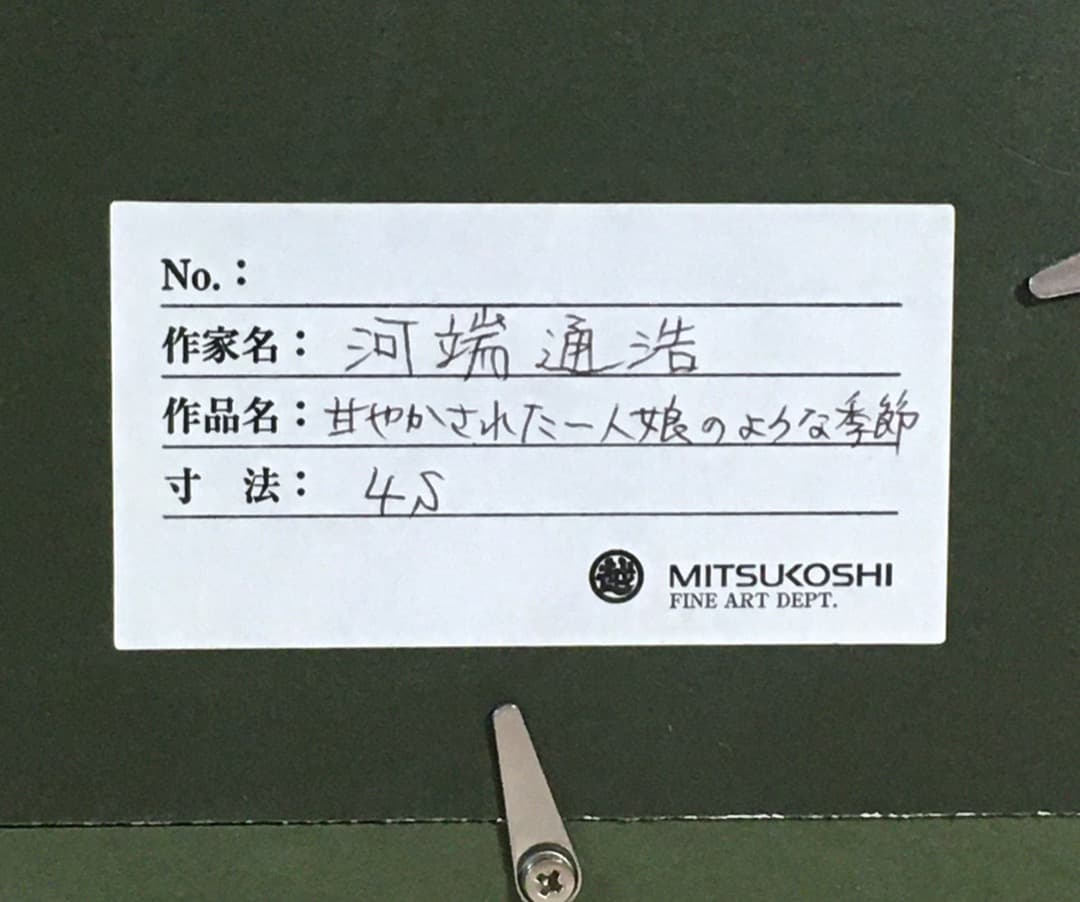 No.：
作家名：河端通浩
作品名：甘やかされた一人娘のような季節
寸　法：4S
越 MITSUKOSHI
FINE ART DEPT.